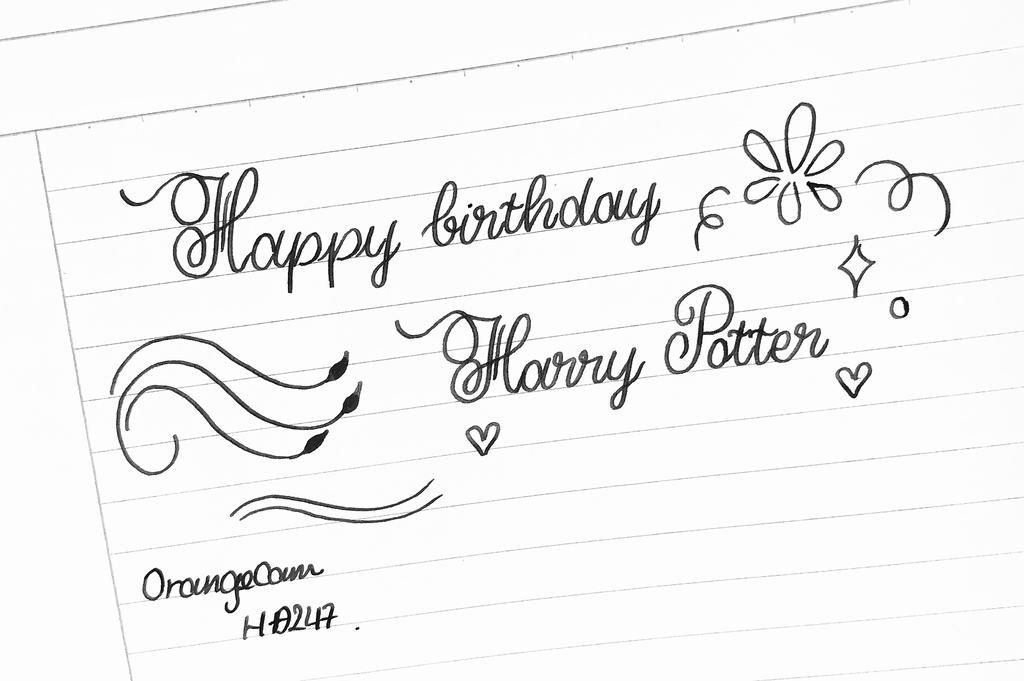 Happy birthday
Harry Potter
OrangeCam
HĐ247.